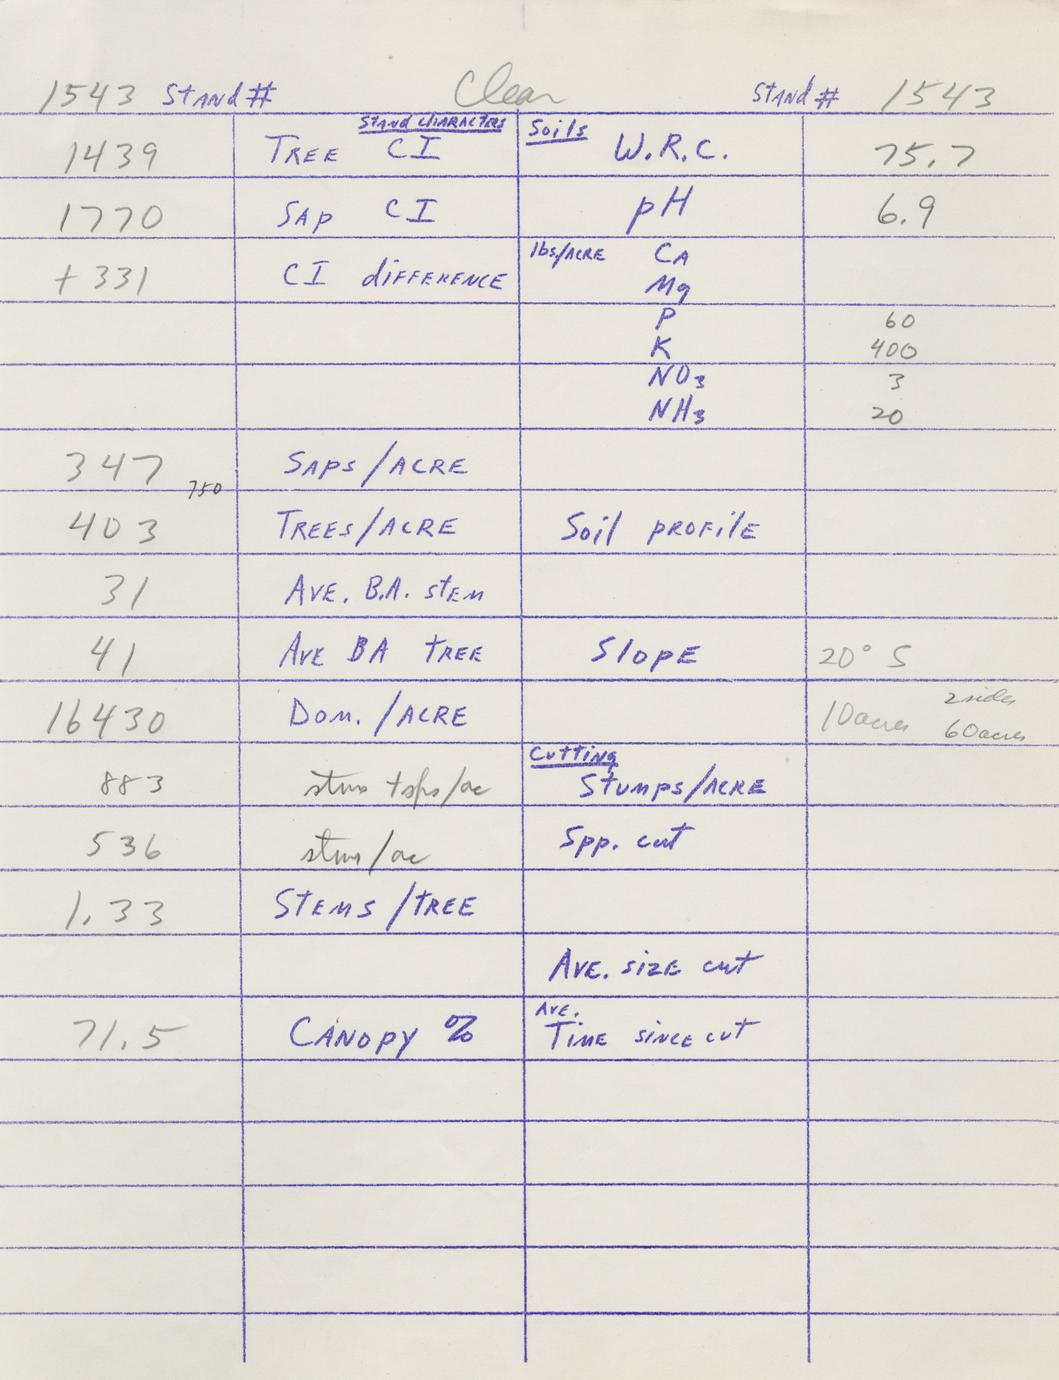 1543 Stand # Clear Stand # 1543
Stand Characters Soils
1439 Tree CI W.R.C. 75.7
1770 Sap CI pH 6.9
+331 CI difference lbs/Acre Ca
Mg
P 60
K 400
NO3 3
NH3 20
347 Saps/Acre
750
403 Trees/Acre Soil profile
31 Ave. B.A. stem
41 Ave BA tree Slope 20° S
16430 Dom./Acre 10 acres 2 sides
60 acres
Cutting
883 stms + sps/ac Stumps/Acre
536 stms/ac Spp. cut
1.33 Stems/tree
Ave. size cut
71.5 Canopy % Ave.
Time since cut